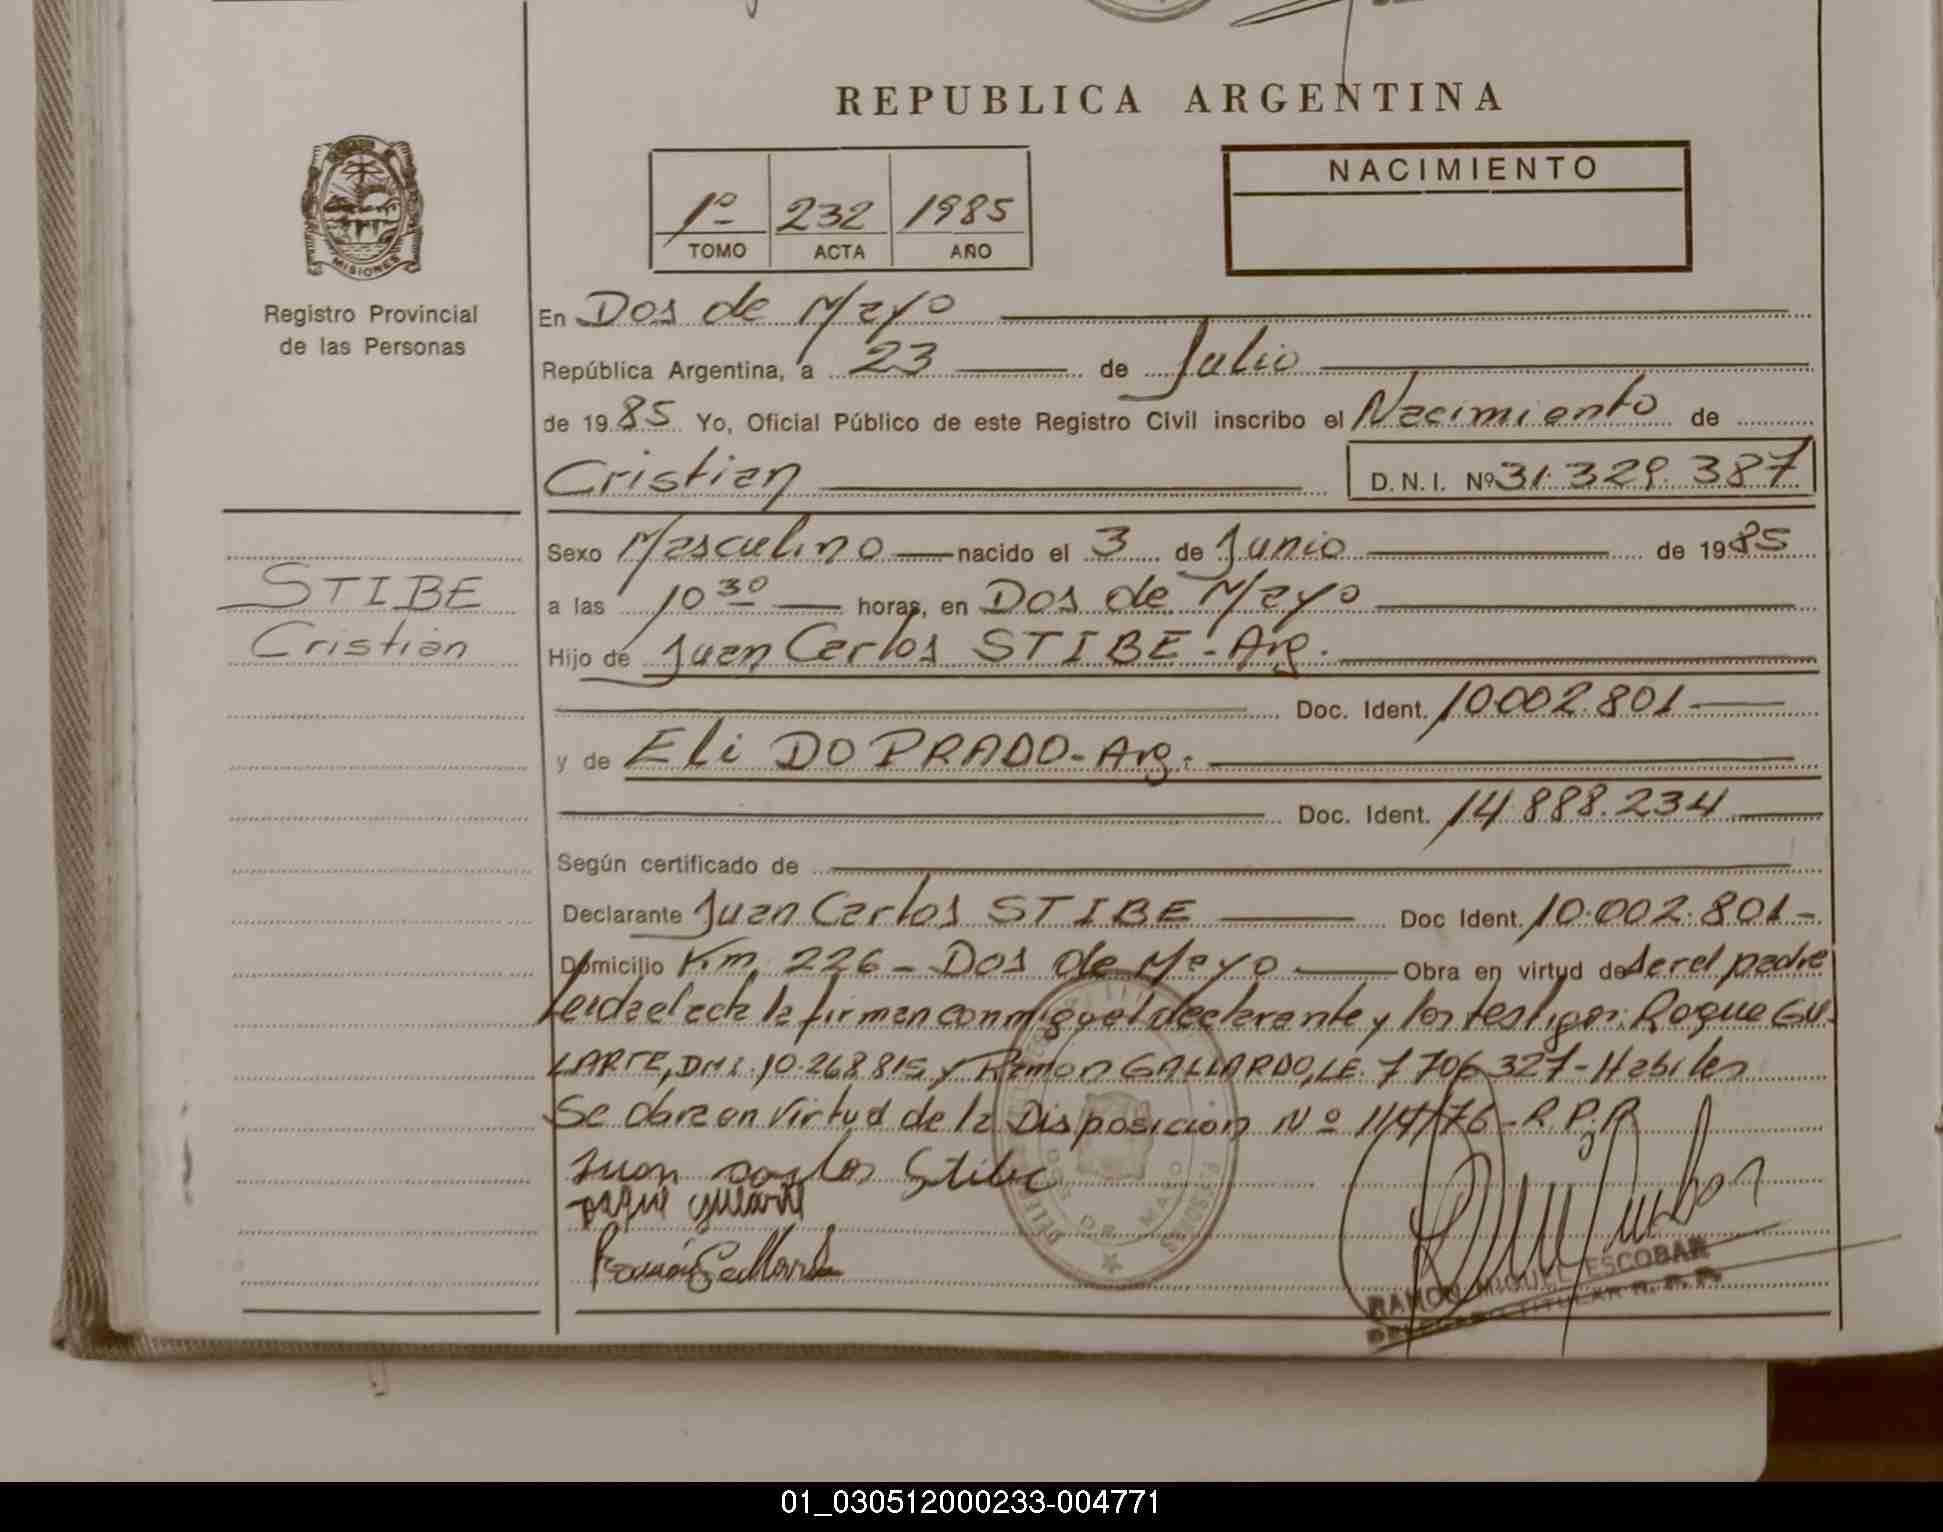 REPUBLICA ARGENTINA
1º 232 1985
TOMO ACTA AÑO
NACIMIENTO
MISIONES
Registro Provincial
de las Personas
En Dos de Mayo
República Argentina, a 23 de Julio
de 1985 Yo, Oficial Público de este Registro Civil inscribo el Nacimiento de
Cristian D.N.I. Nº 31.329.387
Sexo Masculino nacido el 3 de Junio de 1985
STIBE
Cristian
a las 10 30 horas, en Dos de Mayo
Hijo de Juan Carlos STIBE - Arg.
Doc. Ident. 10.002.801
y de Eli DO PRADO - Arg.
Doc. Ident. 14.888.234
Según certificado de
Declarante Juan Carlos STIBE Doc Ident. 10.002.801-
Domicilio Km. 226 - Dos de Mayo Obra en virtud de ser el padre
Leida el acta la firman conmigo el declarante y los testigos: Roque GU-
LARTE, DNI. 10.268.815 y Ramon GALLARDO, LE. 7706327 - Habiles
Se obra en virtud de la Disposicion Nº 114/76 - R.P.P.
Juan Carlos Stibe
Ramón Gallardo
DOS DE MAYO
MISIONES
RAMON MIGUEL ESCOBAR
DELEGADO TITULAR R. P. P.
01_030512000233-004771